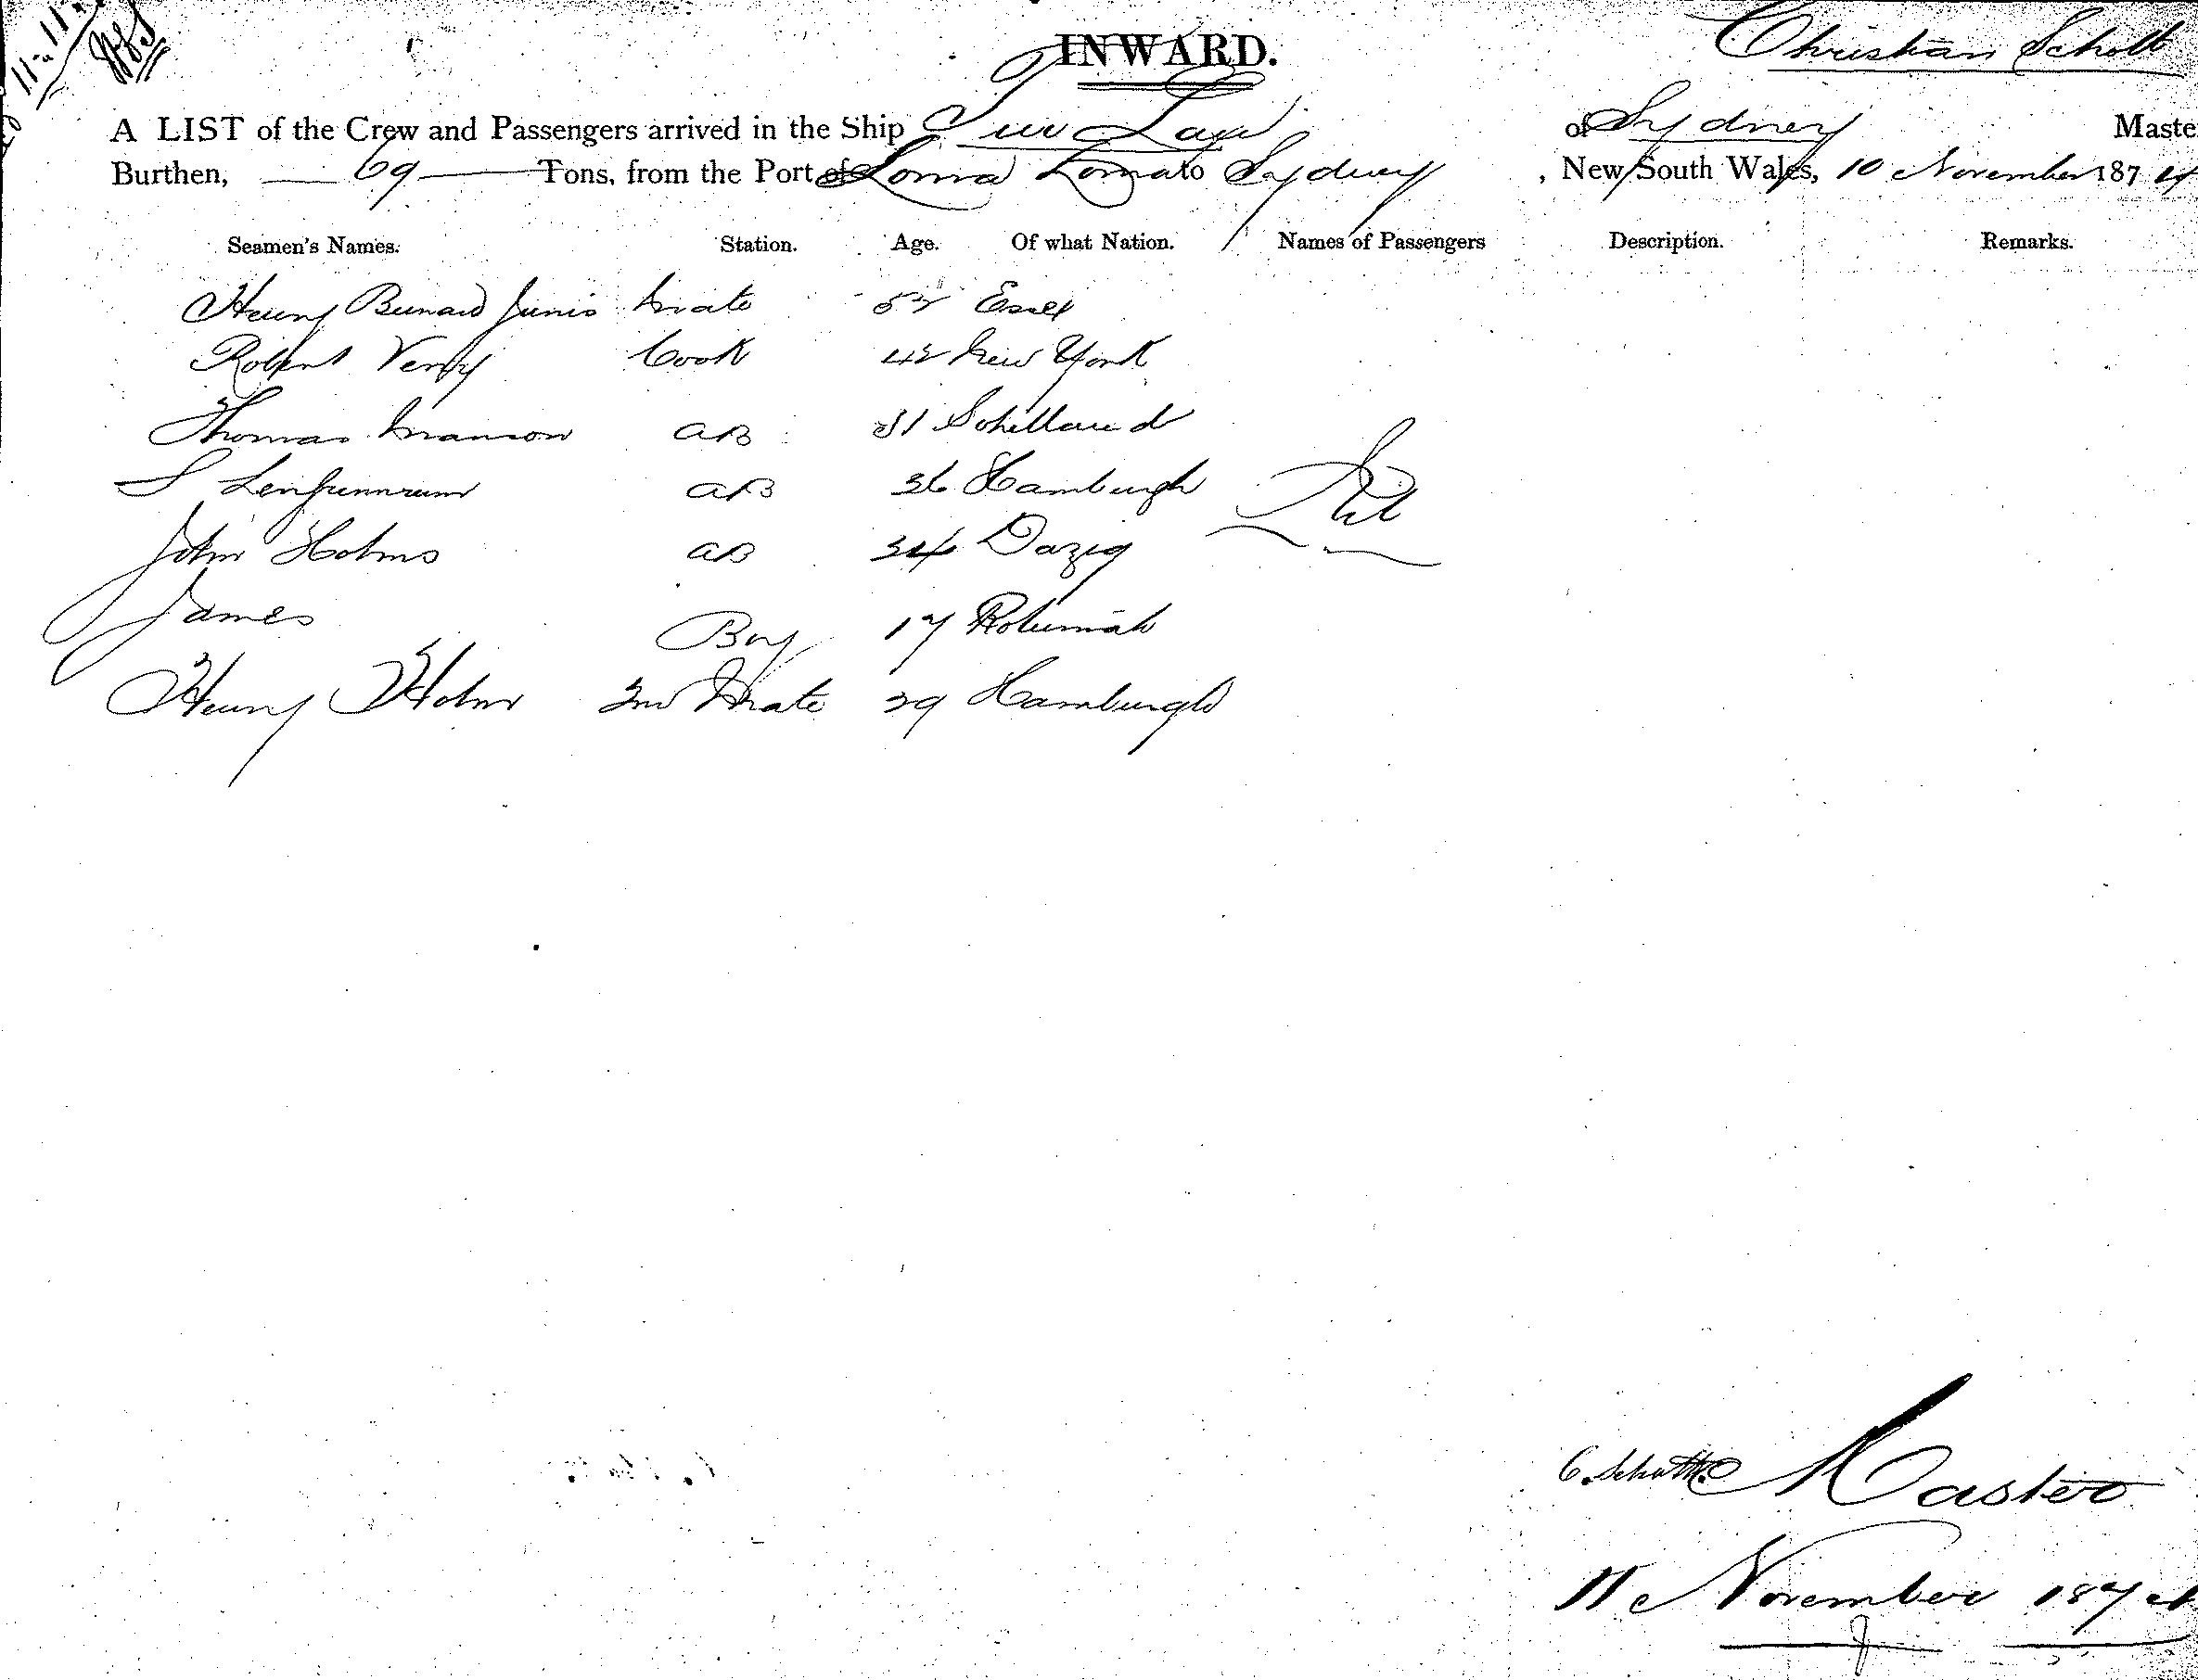 11.11.
INWARD.
Christian Schott
A LIST of the Crew and Passengers arrived in the Ship of Sydney Master
Burthen, 69 Tons, from the Port of Loma Loma to Sydney, New South Wales, 10 November 1874
Seamen's Names. Station. Age. Of what Nation. Names of Passengers Description. Remarks.
Henry Bunard Mate 52 Essex
Robert Verdy Cook 42 New York
Thomas Manson AB 31 Schilland
S AB 36 Hamburgh Nil
John Holms AB 34 Dazig
James Boy 17 Rotumah
Henry Holm 2nd Mate 29 Hamburgh
C. Schutte Master
11 November 1874